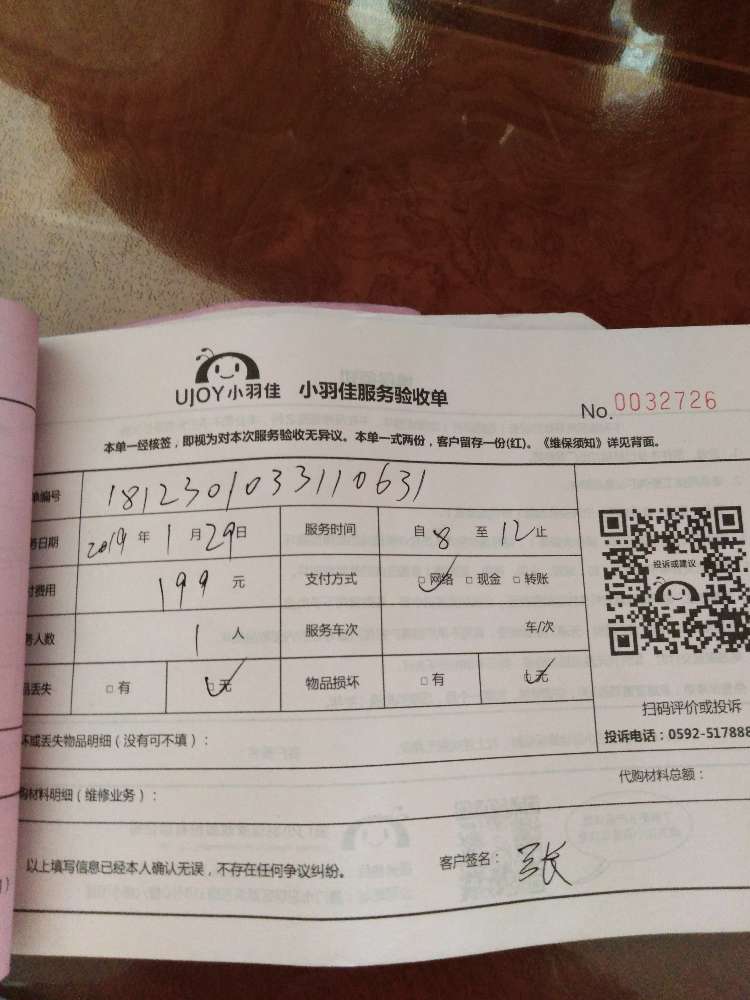 UJOY小羽佳 小羽佳服务验收单
No.0032726
本单一经核签，即视为对本次服务验收无异议。本单一式两份，客户留存一份(红)。《维保须知》详见背面。
单编号 1812301033110631
务日期 2019 年 1 月 29 日 服务时间 自 8 至 12 止
付费用 199 元 支付方式 □网络 □现金 □转账
务人数 1 人 服务车次 车/次
品丢失 □有 □无 物品损坏 □有 □无
投诉或建议
扫码评价或投诉
投诉电话：0592-517888
坏或丢失物品明细（没有可不填）：
代购材料总额：
购材料明细（维修业务）：
以上填写信息已经本人确认无误，不存在任何争议纠纷。
客户签名：张